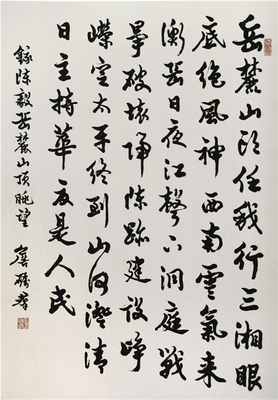 岳麓山頂任我行三湘眼
底絶風神西南雲氣来
衡岳日夜江聲下洞庭戰
畢破壞歸陳跡建設崢
嶸定太平終到山河澄清
日主持華夏是人民
録陳毅岳麓山頂眺望